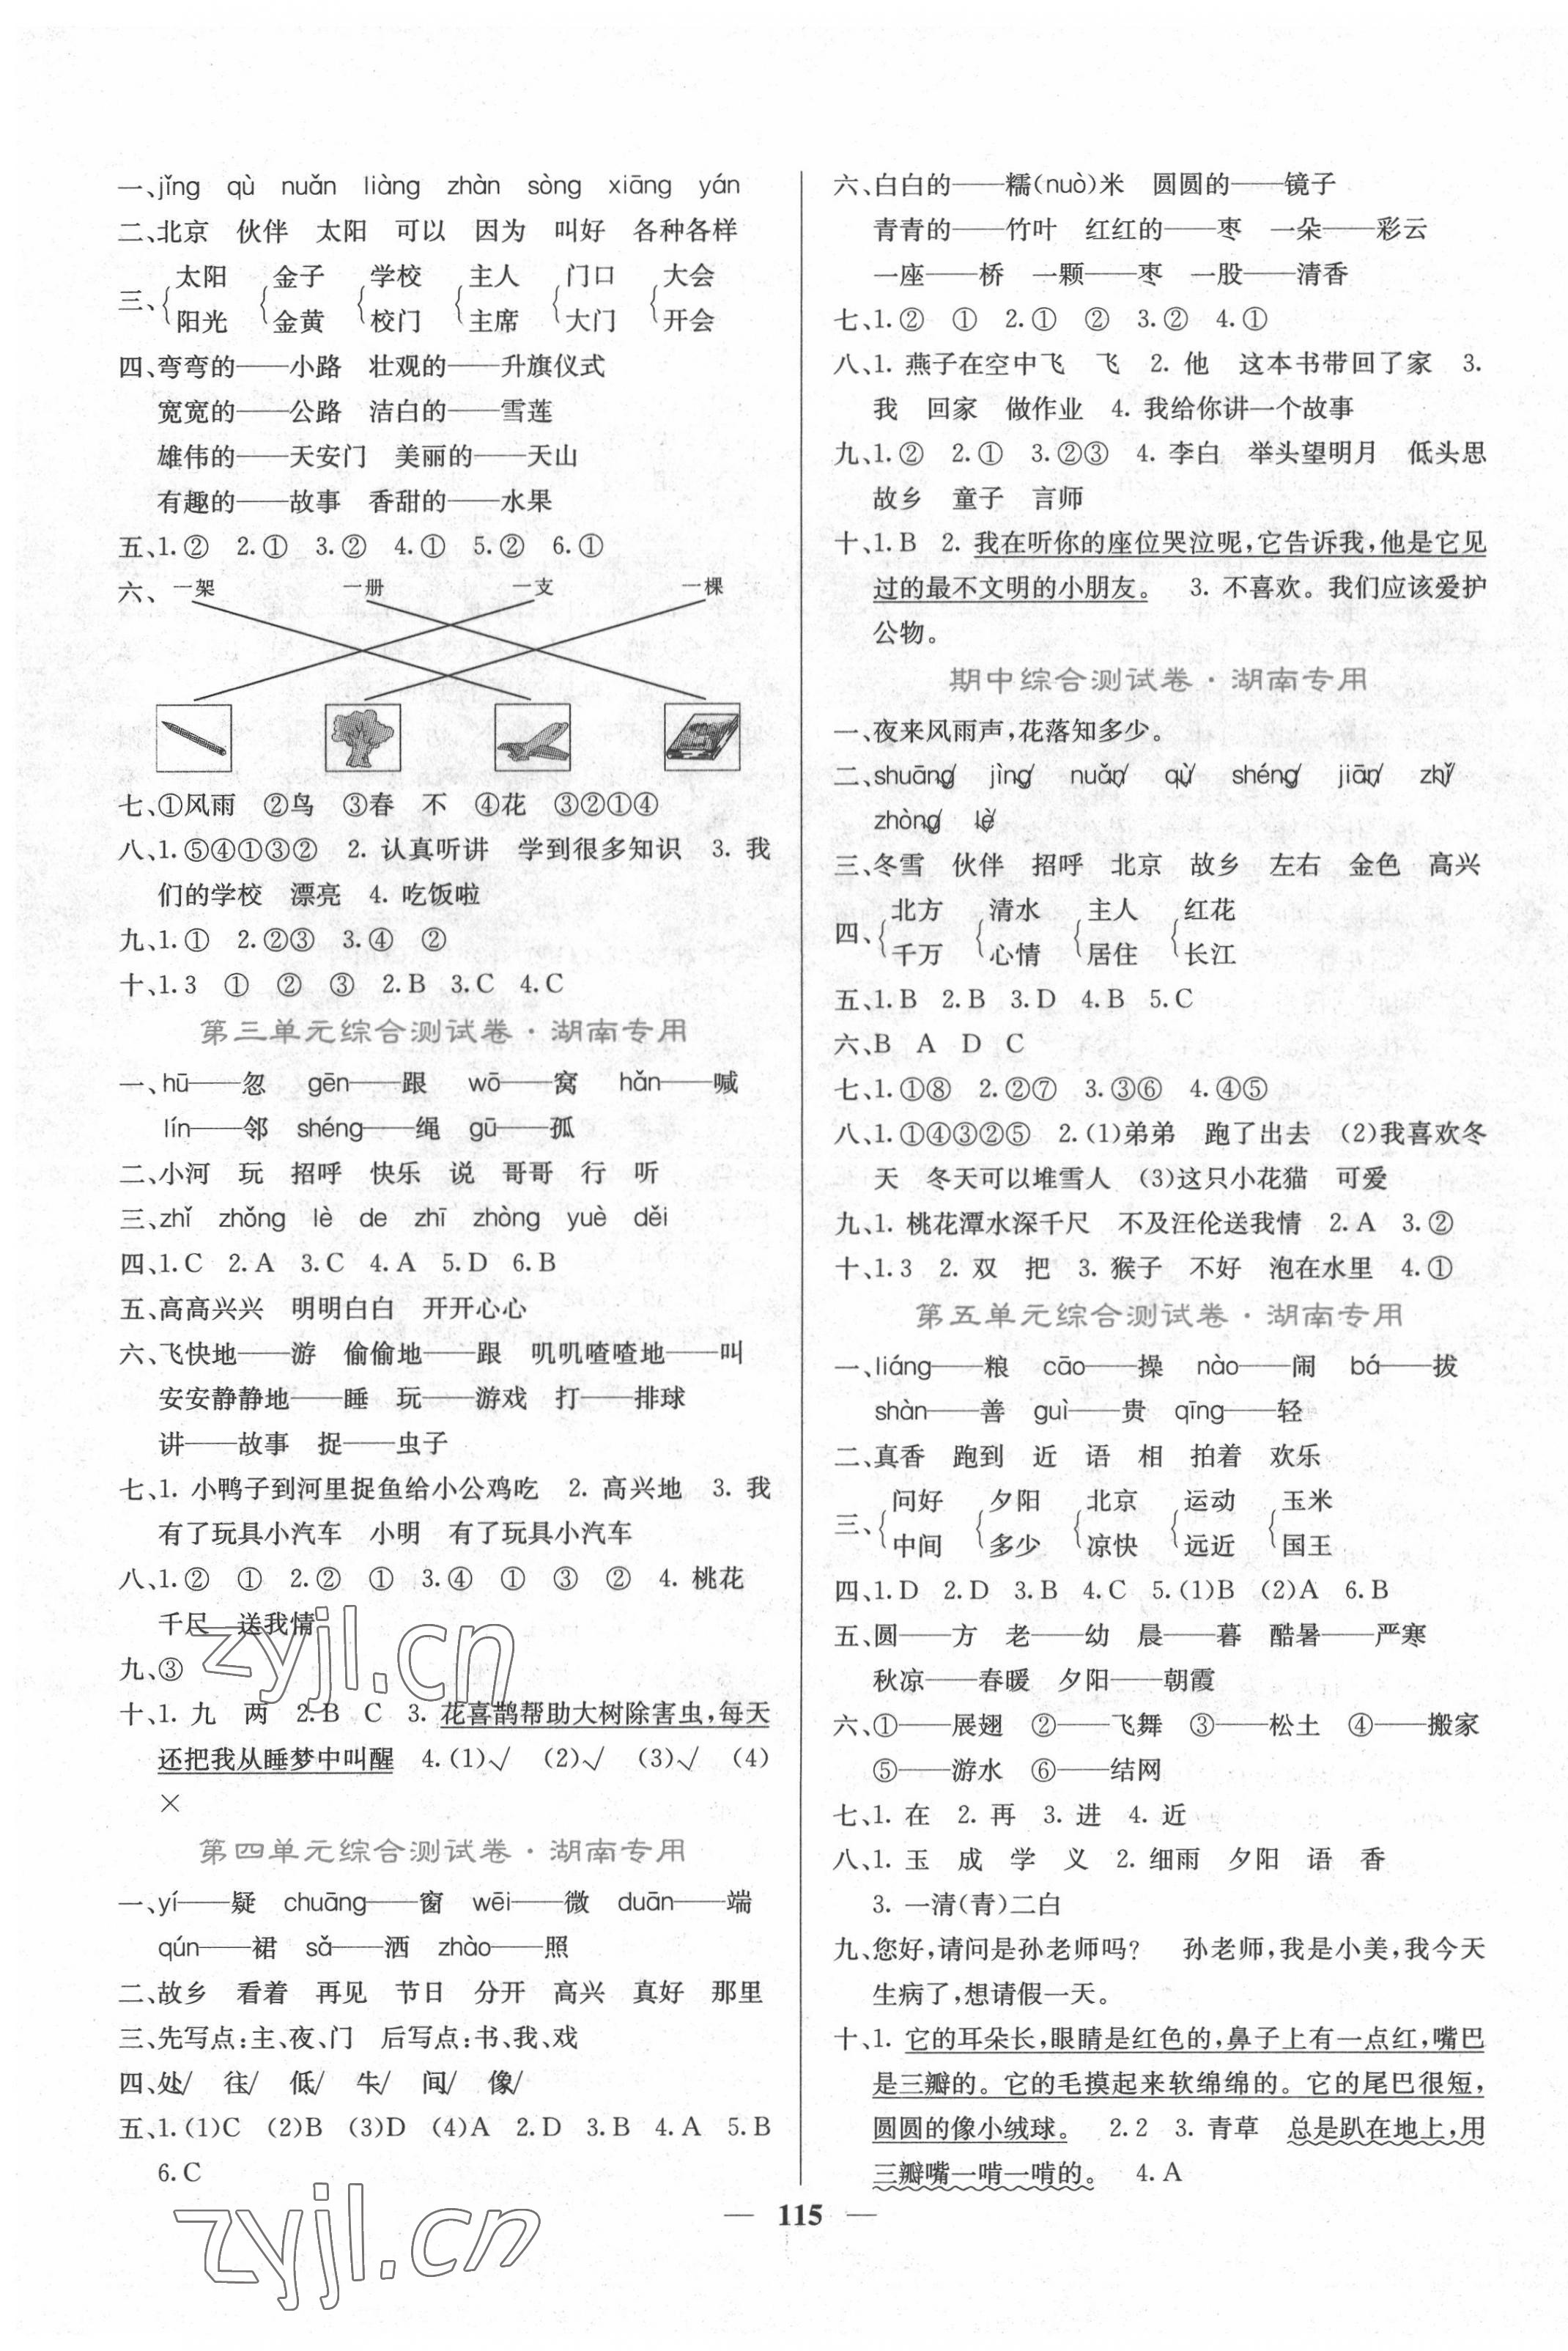 一、jǐng qù nuǎn liàng zhàn sòng xiāng yán
二、北京 伙伴 太阳 可以 因为 叫好 各种各样
三、{太阳 {金子 {学校 {主人 {门口 {大会
阳光 金黄 校门 主席 大门 开会
四、弯弯的——小路 壮观的——升旗仪式
宽宽的——公路 洁白的——雪莲
雄伟的——天安门 美丽的——天山
有趣的——故事 香甜的——水果
五、1.② 2.① 3.② 4.① 5.② 6.①
六、一架 一册 一支 一棵
七、①风雨 ②鸟 ③春 不 ④花 ③②①④
八、1.⑤④①③② 2. 认真听讲 学到很多知识 3. 我
们的学校 漂亮 4. 吃饭啦
九、1.① 2.②③ 3.④ ②
十、1.3 ① ② ③ 2.B 3.C 4.C
第三单元综合测试卷·湖南专用
一、hū——忽 gēn——跟 wō——窝 hǎn——喊
lín——邻 shéng——绳 gū——孤
二、小河 玩 招呼 快乐 说 哥哥 行 听
三、zhǐ zhǒng lè de zhī zhòng yuè děi
四、1.C 2.A 3.C 4.A 5.D 6.B
五、高高兴兴 明明白白 开开心心
六、飞快地——游 偷偷地——跟 叽叽喳喳地——叫
安安静静地——睡 玩——游戏 打——排球
讲——故事 捉——虫子
七、1. 小鸭子到河里捉鱼给小公鸡吃 2. 高兴地 3. 我
有了玩具小汽车 小明 有了玩具小汽车
八、1.② ① 2.② ① 3.④ ① ③ ② 4. 桃花
千尺 送我情
九、③
十、1. 九 两 2.B C 3. 花喜鹊帮助大树除害虫,每天
还把我从睡梦中叫醒 4.(1)√ (2)√ (3)√ (4)
×
第四单元综合测试卷·湖南专用
一、yí——疑 chuāng——窗 wēi——微 duān——端
qún——裙 sǎ——洒 zhào——照
二、故乡 看着 再见 节日 分开 高兴 真好 那里
三、先写点:主、夜、门 后写点:书、我、戏
四、处/ 往/ 低/ 牛/ 间/ 像/
五、1.(1)C (2)B (3)D (4)A 2.D 3.B 4.A 5.B
6.C
六、白白的——糯(nuò)米 圆圆的——镜子
青青的——竹叶 红红的——枣 一朵——彩云
一座——桥 一颗——枣 一股——清香
七、1.② ① 2.① ② 3.② 4.①
八、1. 燕子在空中飞 飞 2. 他 这本书带回了家 3.
我 回家 做作业 4. 我给你讲一个故事
九、1.② 2.① 3.②③ 4. 李白 举头望明月 低头思
故乡 童子 言师
十、1.B 2. 我在听你的座位哭泣呢,它告诉我,他是它见
过的最不文明的小朋友。 3. 不喜欢。我们应该爱护
公物。
期中综合测试卷·湖南专用
一、夜来风雨声,花落知多少。
二、shuāng/ jìng/ nuǎn/ qù/ shéng/ jiān/ zhǐ/
zhòng/ lè/
三、冬雪 伙伴 招呼 北京 故乡 左右 金色 高兴
四、{北方 {清水 {主人 {红花
千万 心情 居住 长江
五、1.B 2.B 3.D 4.B 5.C
六、B A D C
七、1.①⑧ 2.②⑦ 3.③⑥ 4.④⑤
八、1.①④③②⑤ 2.(1)弟弟 跑了出去 (2)我喜欢冬
天 冬天可以堆雪人 (3)这只小花猫 可爱
九、1. 桃花潭水深千尺 不及汪伦送我情 2.A 3.②
十、1.3 2. 双 把 3. 猴子 不好 泡在水里 4.①
第五单元综合测试卷·湖南专用
一、liáng——粮 cāo——操 nào——闹 bá——拔
shàn——善 guì——贵 qīng——轻
二、真香 跑到 近 语 相 拍着 欢乐
三、{问好 {夕阳 {北京 {运动 {玉米
中间 多少 凉快 远近 国王
四、1.D 2.D 3.B 4.C 5.(1)B (2)A 6.B
五、圆——方 老——幼 晨——暮 酷暑——严寒
秋凉——春暖 夕阳——朝霞
六、①——展翅 ②——飞舞 ③——松土 ④——搬家
⑤——游水 ⑥——结网
七、1. 在 2. 再 3. 进 4. 近
八、1. 玉 成 学 义 2. 细雨 夕阳 语 香
3. 一清(青)二白
九、您好,请问是孙老师吗? 孙老师,我是小美,我今天
生病了,想请假一天。
十、1. 它的耳朵长,眼睛是红色的,鼻子上有一点红,嘴巴
是三瓣的。它的毛摸起来软绵绵的。它的尾巴很短,
圆圆的像小绒球。 2.2 3. 青草 总是趴在地上,用
三瓣嘴一啃一啃的。 4.A
— 115 —
zyjl.cn
zyjl.cn